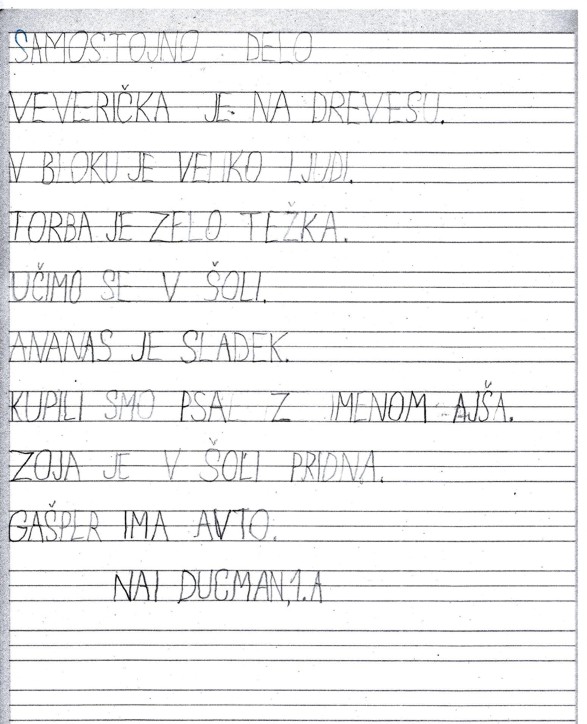 SAMOSTOJNO DELO
VEVERIČKA JE NA DREVESU.
V BLOKU JE VELIKO LJUDI.
TORBA JE ZELO TEŽKA.
UČIMO SE V ŠOLI.
ANANAS JE SLADEK.
KUPILI SMO PSA Z IMENOM AJŠA.
ZOJA JE V ŠOLI PRIDNA.
GAŠPER IMA AVTO.
NAI DUCMAN, 1.A